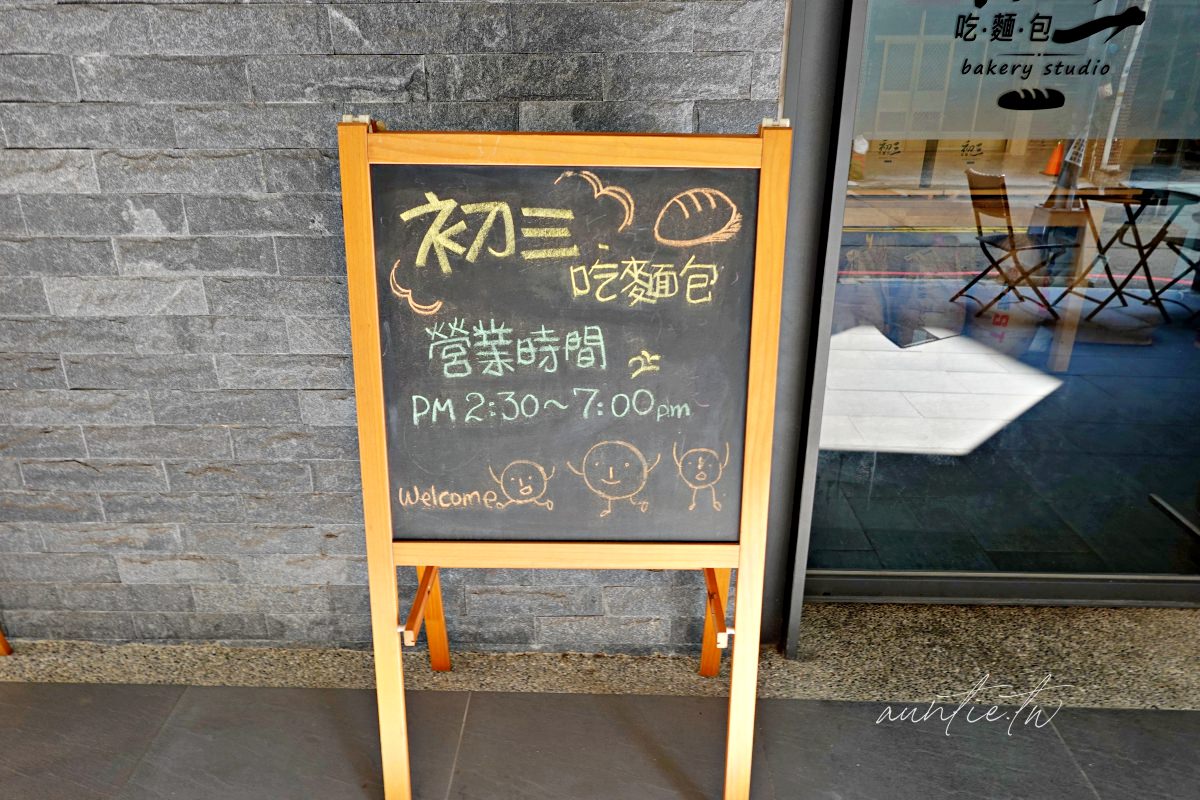 初三
吃麵包
營業時間
PM 2:30~7:00pm
Welcome
吃·麵·包
bakery studio
初三
初三
auntie.tw